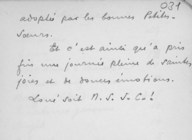 031
adoptés par les bonnes Petites
Sœurs.
Et c'est ainsi qu'a pris
fin une journée pleine de saintes
joies et de douces émotions.
Loué soit N. S. J. C.!